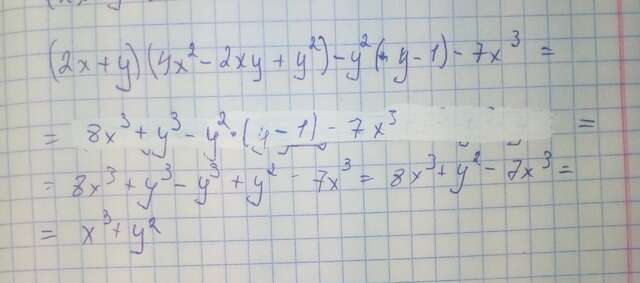 (2x+y)(4x²-2xy+y²)-y²(y-1)-7x³=
= 8x³+y³-y²·(y-1)-7x³ =
= 8x³+y³-y³+y²-7x³=8x³+y²-7x³=
= x³+y²